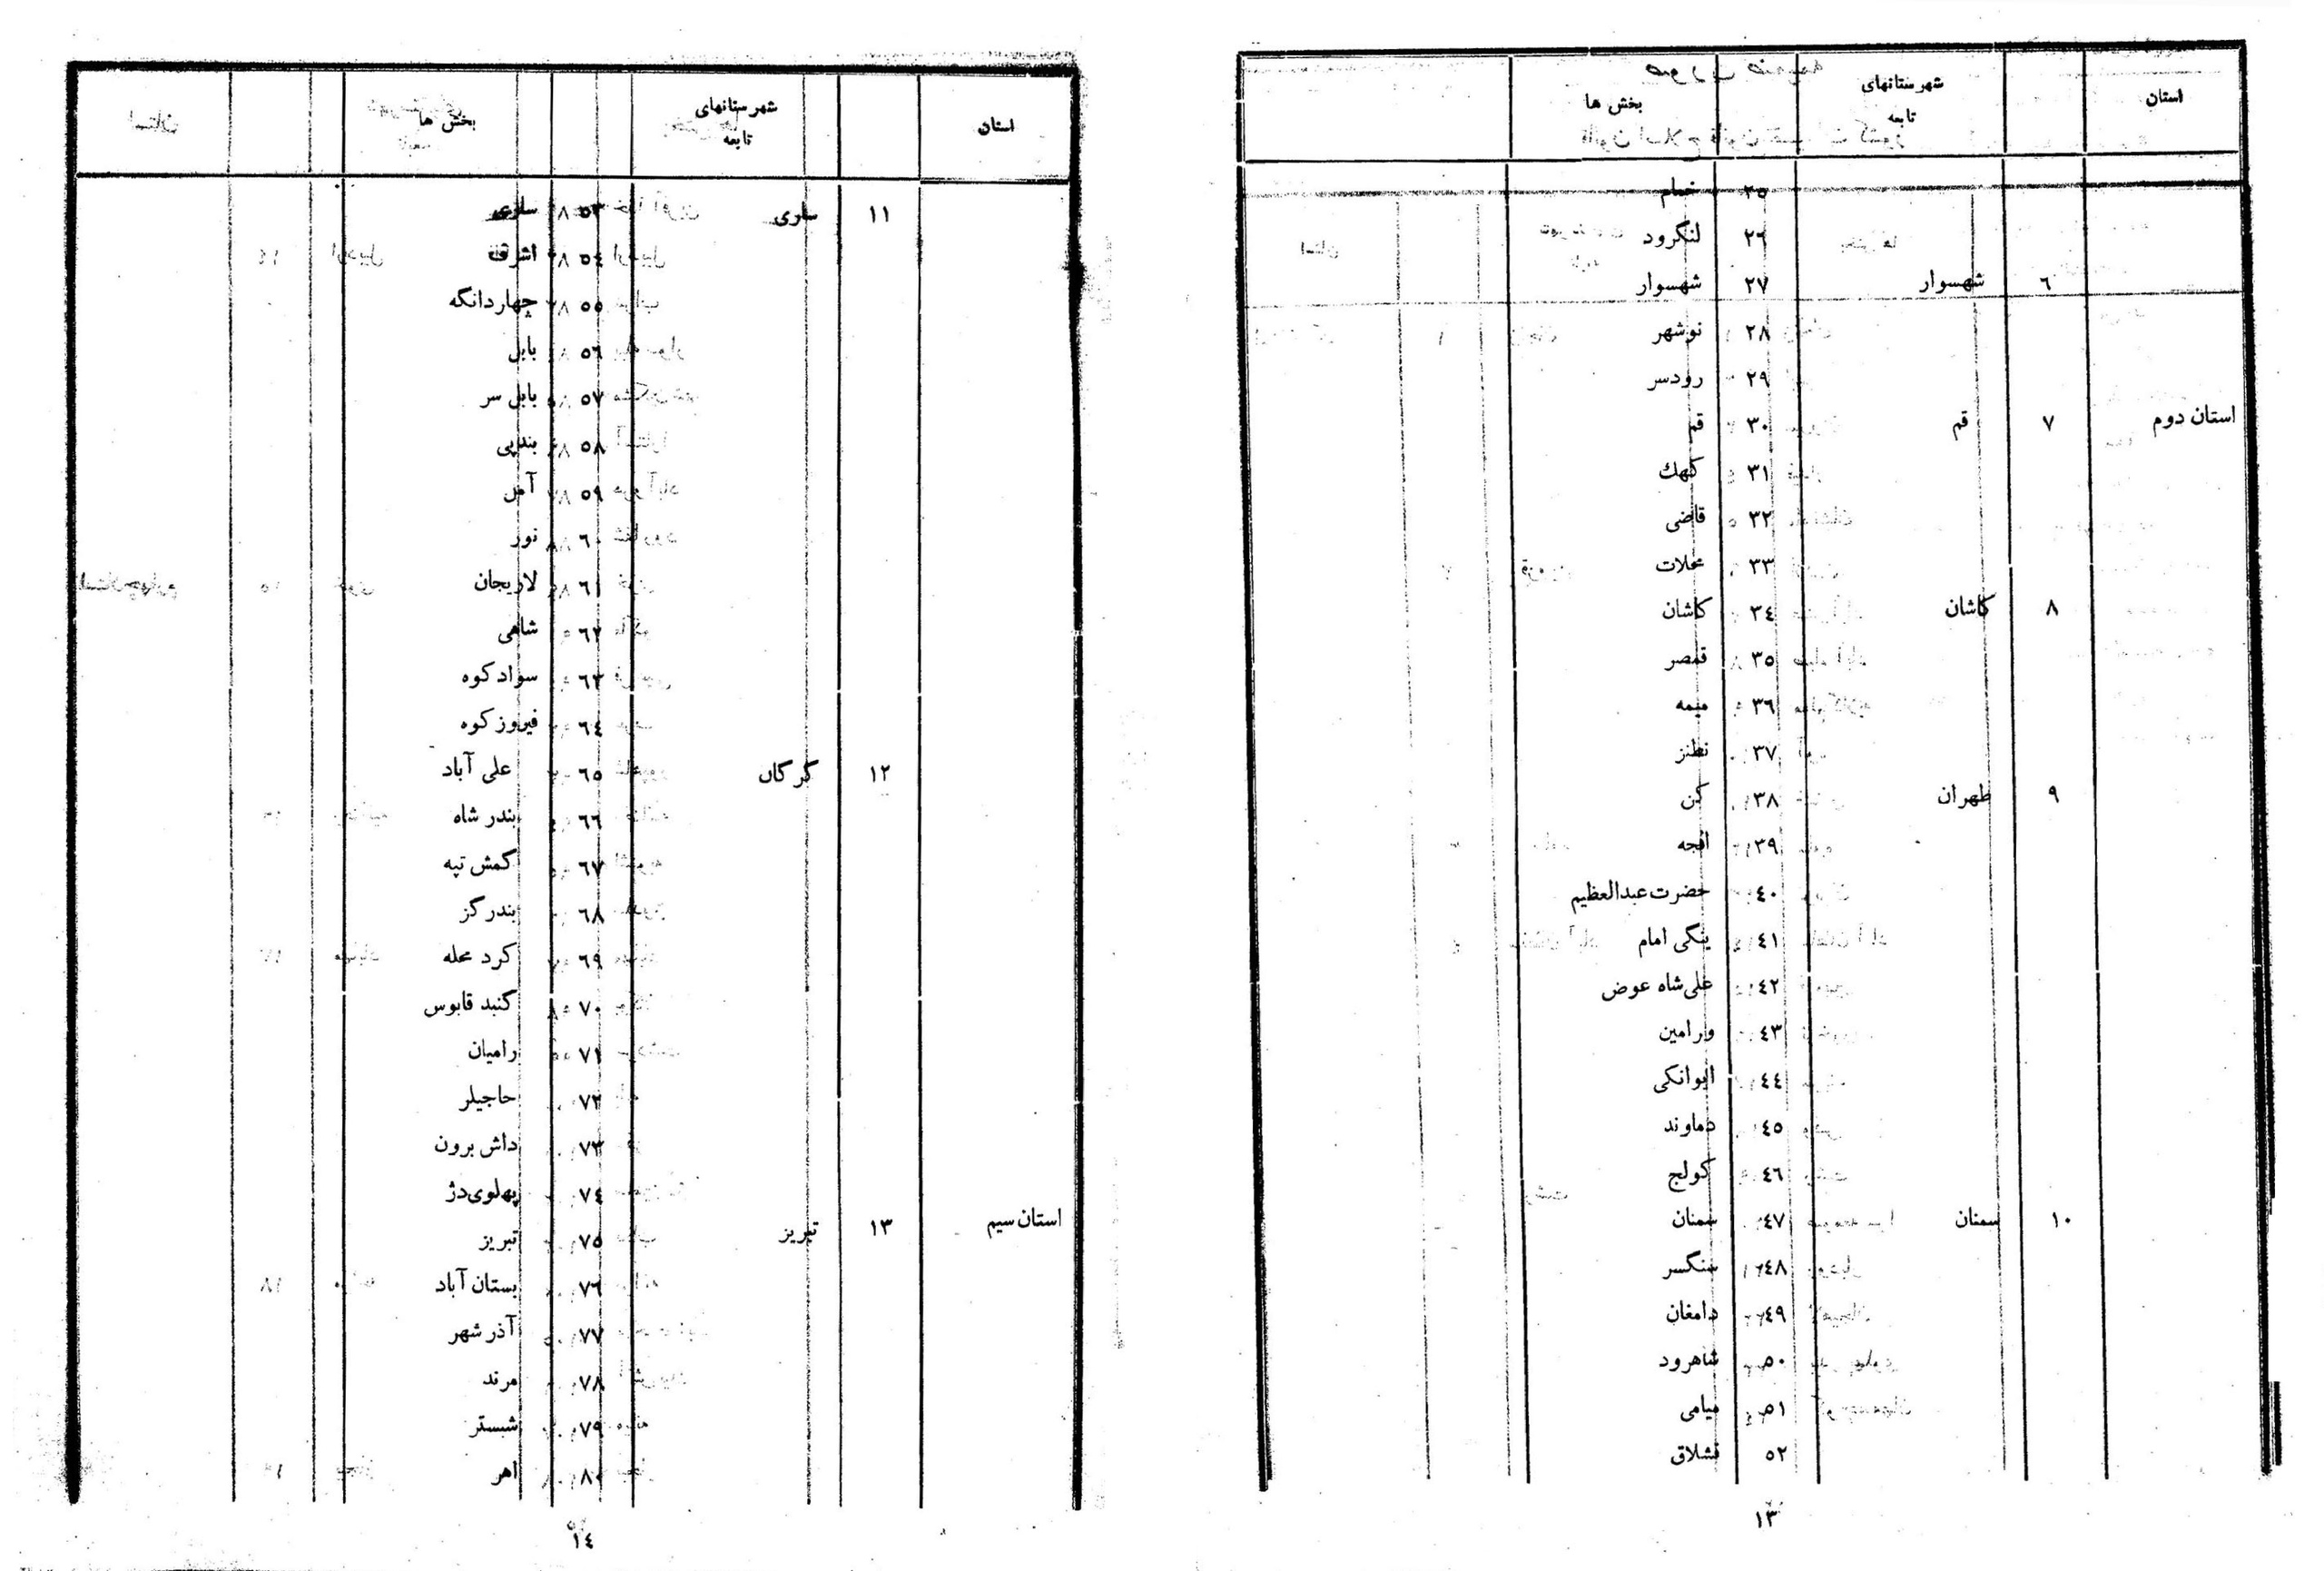 استان شهرستانهای تابعه بخش ها
۲۵ خمام
۲٦ لنگرود
٦ شهسوار ۲۷ شهسوار
۲۸ نوشهر
۲۹ رودسر
استان دوم ۷ قم ۳۰ قم
۳۱ کهك
۳۲ قاضی
۳۳ محلات
۸ کاشان ۳٤ کاشان
۳٥ قمصر
۳٦ میمه
۳۷ نطنز
۹ طهران ۳۸ کن
۳۹ افجه
٤۰ حضرت عبدالعظیم
٤۱ ینگی امام
٤۲ علی‌شاه عوض
٤۳ ورامین
٤٤ ایوانکی
٤٥ دماوند
٤٦ کولج
۱۰ سمنان ٤۷ سمنان
٤۸ سنگسر
٤۹ دامغان
٥۰ شاهرود
٥۱ میامی
٥۲ قشلاق
۱۳
استان شهرستانهای تابعه بخش ها
۱۱ ساری ٥۳ ساری
٥٤ اشرف
٥٥ چهاردانگه
٥٦ بابل
٥۷ بابل سر
٥۸ بندپی
٥۹ آمل
٦۰ نور
٦۱ لاریجان
٦۲ شاهی
٦۳ سوادکوه
٦٤ فیروزکوه
۱۲ گرگان ٦٥ علی آباد
٦٦ بندر شاه
٦۷ گمش تپه
٦۸ بندرگز
٦۹ کرد محله
۷۰ گنبد قابوس
۷۱ رامیان
۷۲ حاجیلر
۷۳ داش برون
۷٤ پهلوی‌دژ
استان سیم ۱۳ تبریز ۷٥ تبریز
۷٦ بستان آباد
۷۷ آذر شهر
۷۸ مرند
۷۹ شبستر
۸۰ اهر
۱٤